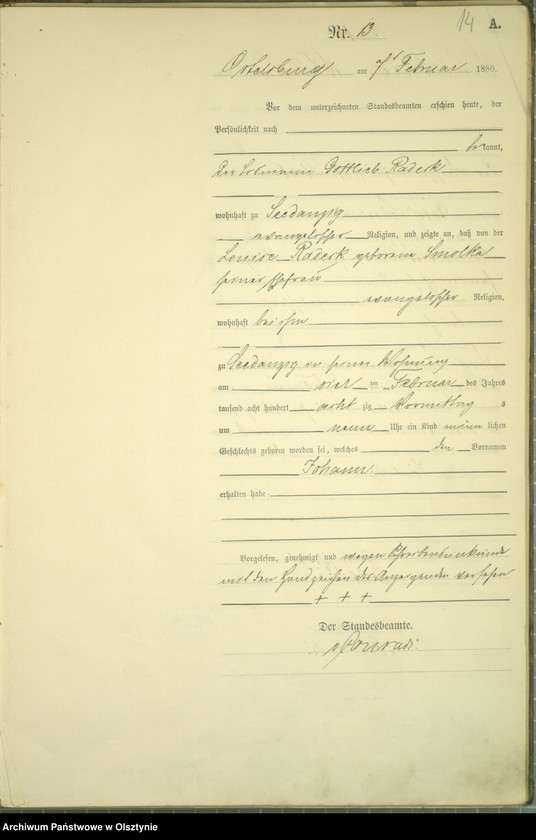 14 A.
Nr. 13.
Ortelsburg am 7t Februar 1880.
Vor dem unterzeichneten Standesbeamten erschien heute, der
Persönlichkeit nach
bekannt,
Der Gottlieb Radeck
wohnhaft zu Seedanzig
evangelischer Religion, und zeigte an, daß von der
Louise Radeck geborene Smolka
seiner Ehefrau
evangelischer Religion,
wohnhaft bei ihm
zu Seedanzig in seiner Wohnung
am vier ten Februar des Jahres
tausend acht hundert acht zig Vormittag s
um neun Uhr ein Kind männlichen
Geschlechts geboren worden sei, welches den Vornamen
Johann.
erhalten habe
Vorgelesen, genehmigt und wegen Schreibensunkunde
mit den Handzeichen des Anzeigenden versehen
+ + +
Der Standesbeamte.
v Conradi.
Archiwum Państwowe w Olsztynie